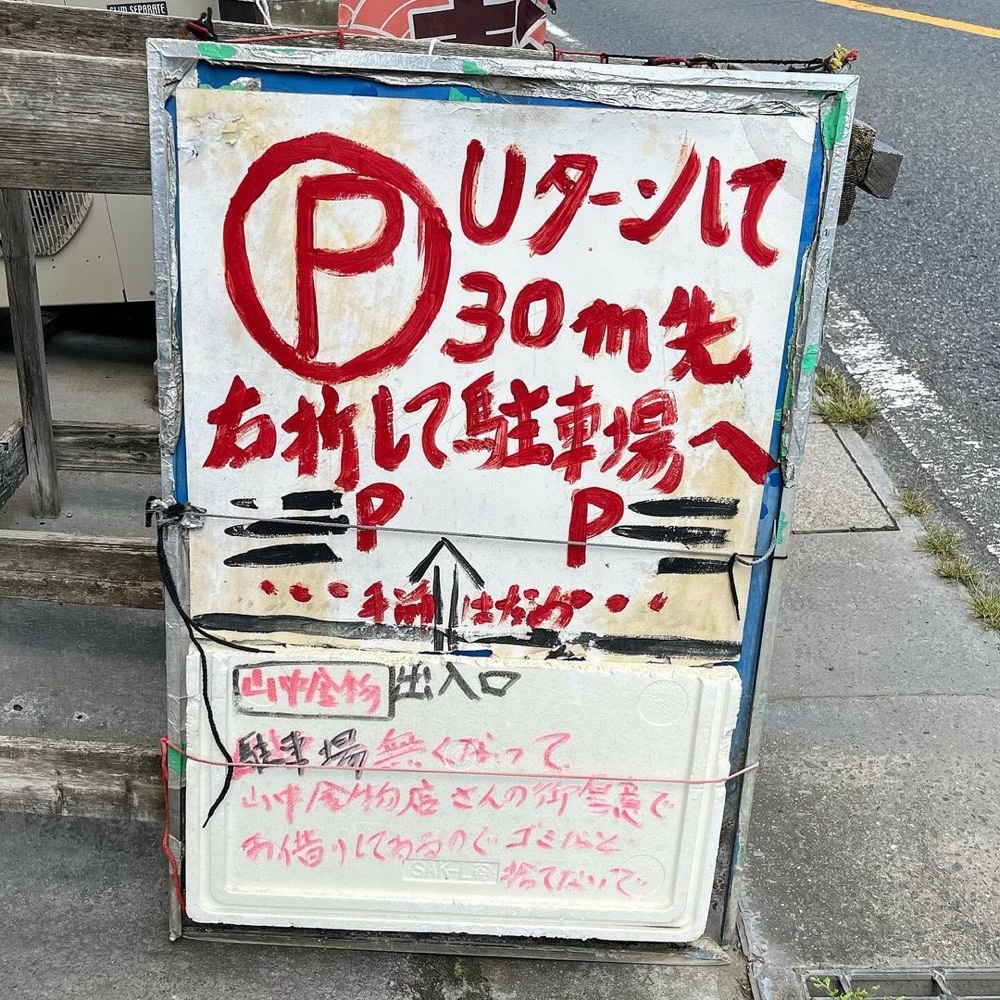 SLIM SEPARATE
P Uターンして
30m先
右折して駐車場へ
P P
・・・手前はだめ・・・
山中金物 出入口
駐車場無くなって
山中金物店さんの御好意で
お借りしてるので ゴミなど
SAK-L
捨てないで